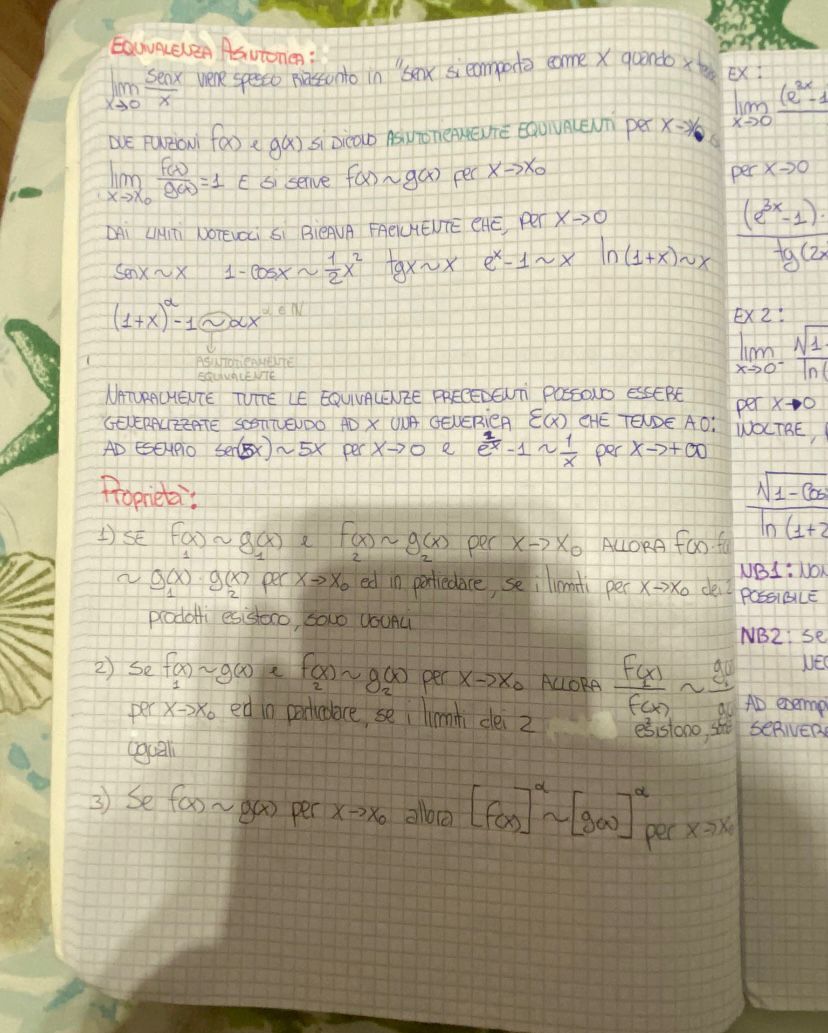 EQUIVALENZA ASINTOTICA:
lim x→0 senx/x viene spesso riassunto in "senx si comporta come x quando x
DUE FUNZIONI f(x) e g(x) SI DICONO ASINTOTICAMENTE EQUIVALENTI per x→x₀
lim x→x₀ f(x)/g(x) = 1 E SI scrive f(x) ~ g(x) per x→x₀
DAI LIMITI NOTEVOLI SI RICAVA FACILMENTE CHE, per x→0
senx ~ x 1-cosx ~ 1/2 x² tgx ~ x eˣ-1 ~ x ln(1+x) ~ x
(1+x)^α - 1 ~ αx α ∈ ℕ
ASINTOTICAMENTE
EQUIVALENTE
NATURALMENTE TUTTE LE EQUIVALENZE PRECEDENTI POSSONO ESSERE
GENERALIZZATE SOSTITUENDO AD X UNA GENERICA Ɛ(x) CHE TENDE A 0:
AD ESEMPIO sen(5x) ~ 5x per x→0 e e^(1/x) - 1 ~ 1/x per x→+∞
Proprietà:
1) SE f₁(x) ~ g₁(x) e f₂(x) ~ g₂(x) per x→x₀ ALLORA f(x)·f
~ g₁(x) · g₂(x) per x→x₀ ed in particolare, se i limiti per x→x₀ dei 2
prodotti esistono, sono UGUALI
2) Se f₁(x) ~ g(x) e f₂(x) ~ g₂(x) per x→x₀ ALLORA f₁(x)/f₂(x) ~
per x→x₀ ed in particolare, se i limiti dei 2 esistono,
uguali
3) Se f(x) ~ g(x) per x→x₀ allora [f(x)]^α ~ [g(x)]^α per x→x₀
EX:
lim x→0 (e³ˣ-1
per x→0
(e³ˣ-1)·
tg(2x
EX 2:
lim x→0⁻ √1-
ln(
per x→0
INOLTRE,
√1-cos
ln(1+2
NB1: NON
POSSIBILE
NB2: se
NEC
AD esempi
SCRIVERE